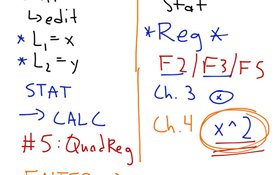 ↳edit
* L₁ = x
* L₂ = y
STAT
→ CALC
#5: QuadReg
ENTER
Stat
*Reg*
F2/F3/F5
Ch. 3 x
Ch. 4 x^2